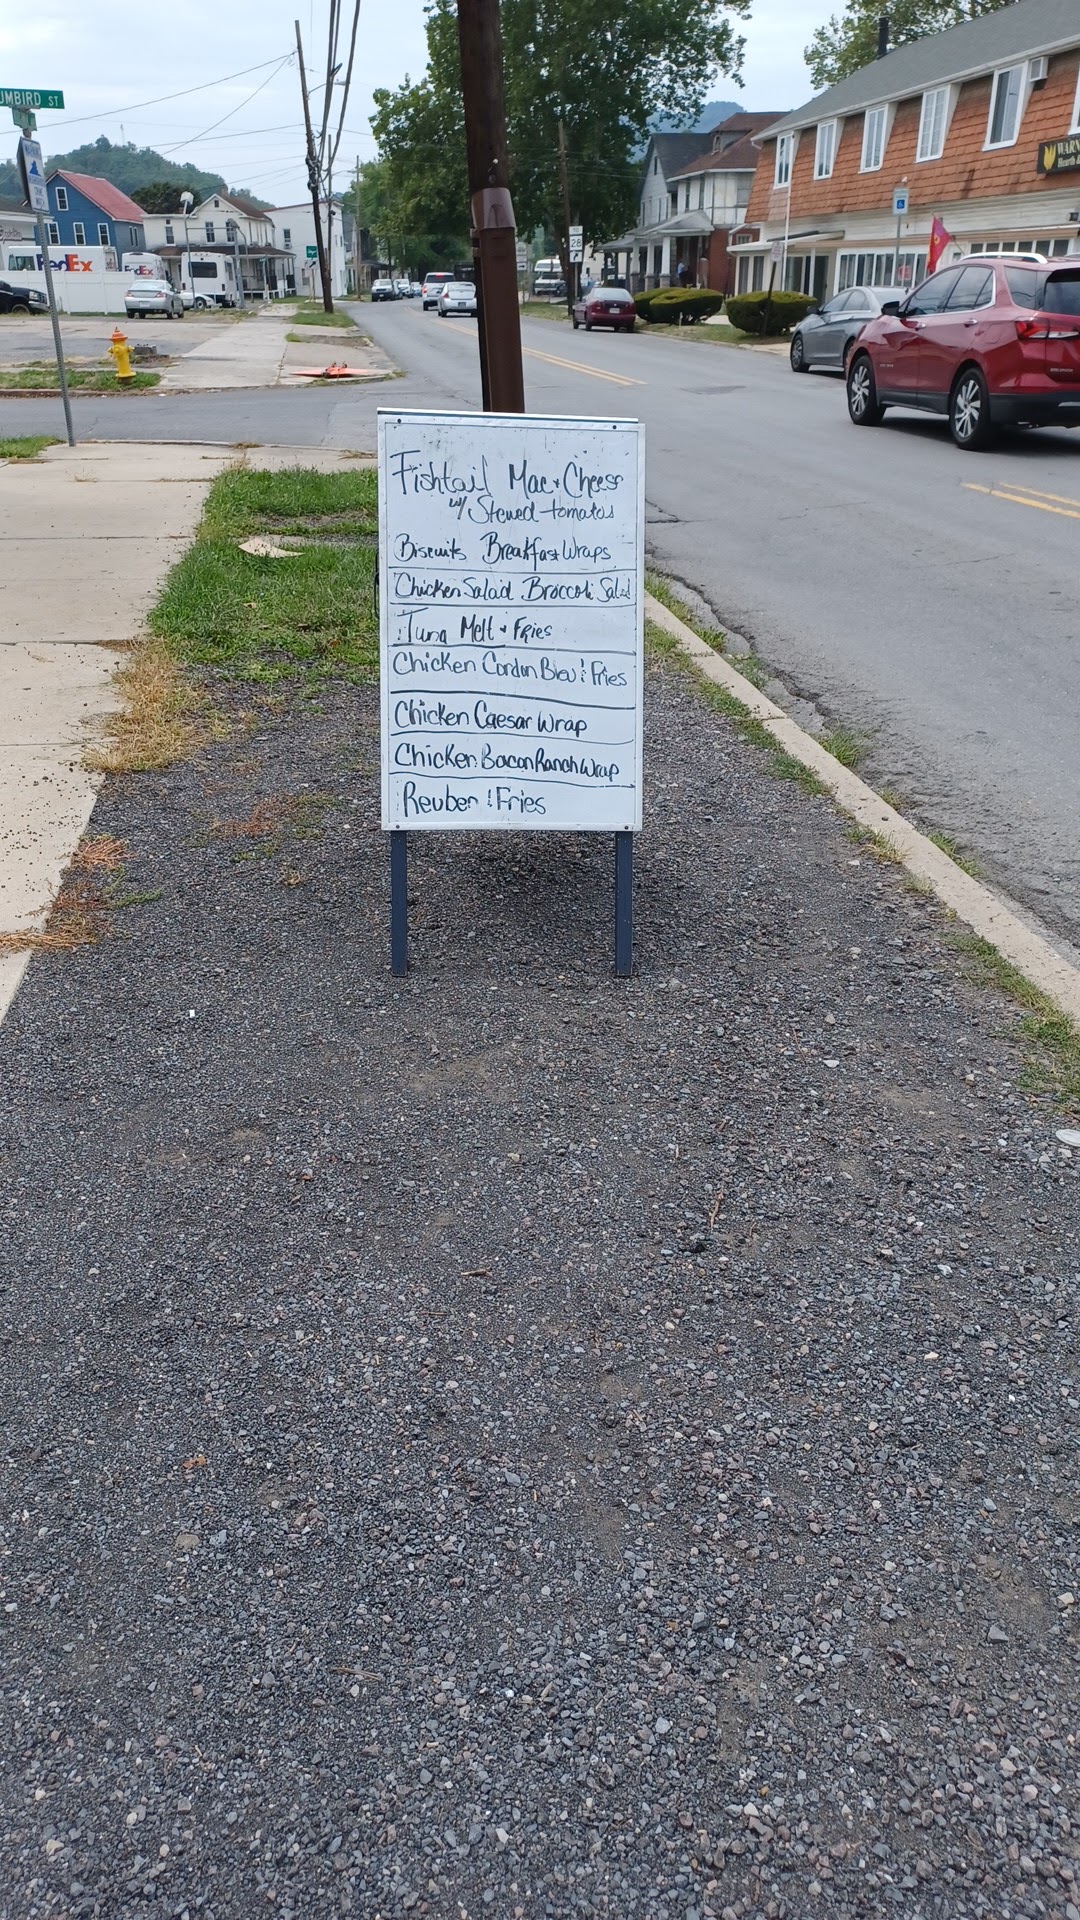 UMBIRD ST
FedEx
FedEx
28
WARN
Hearth
Fishtail Mac + Cheese
w/ Stewed tomatos
Biscuits Breakfast Wraps
Chicken Salad Broccoli Salad
Tuna Melt + Fries
Chicken Cordon Bleu & Fries
Chicken Caesar Wrap
Chicken Bacon Ranch Wrap
Reuben & Fries